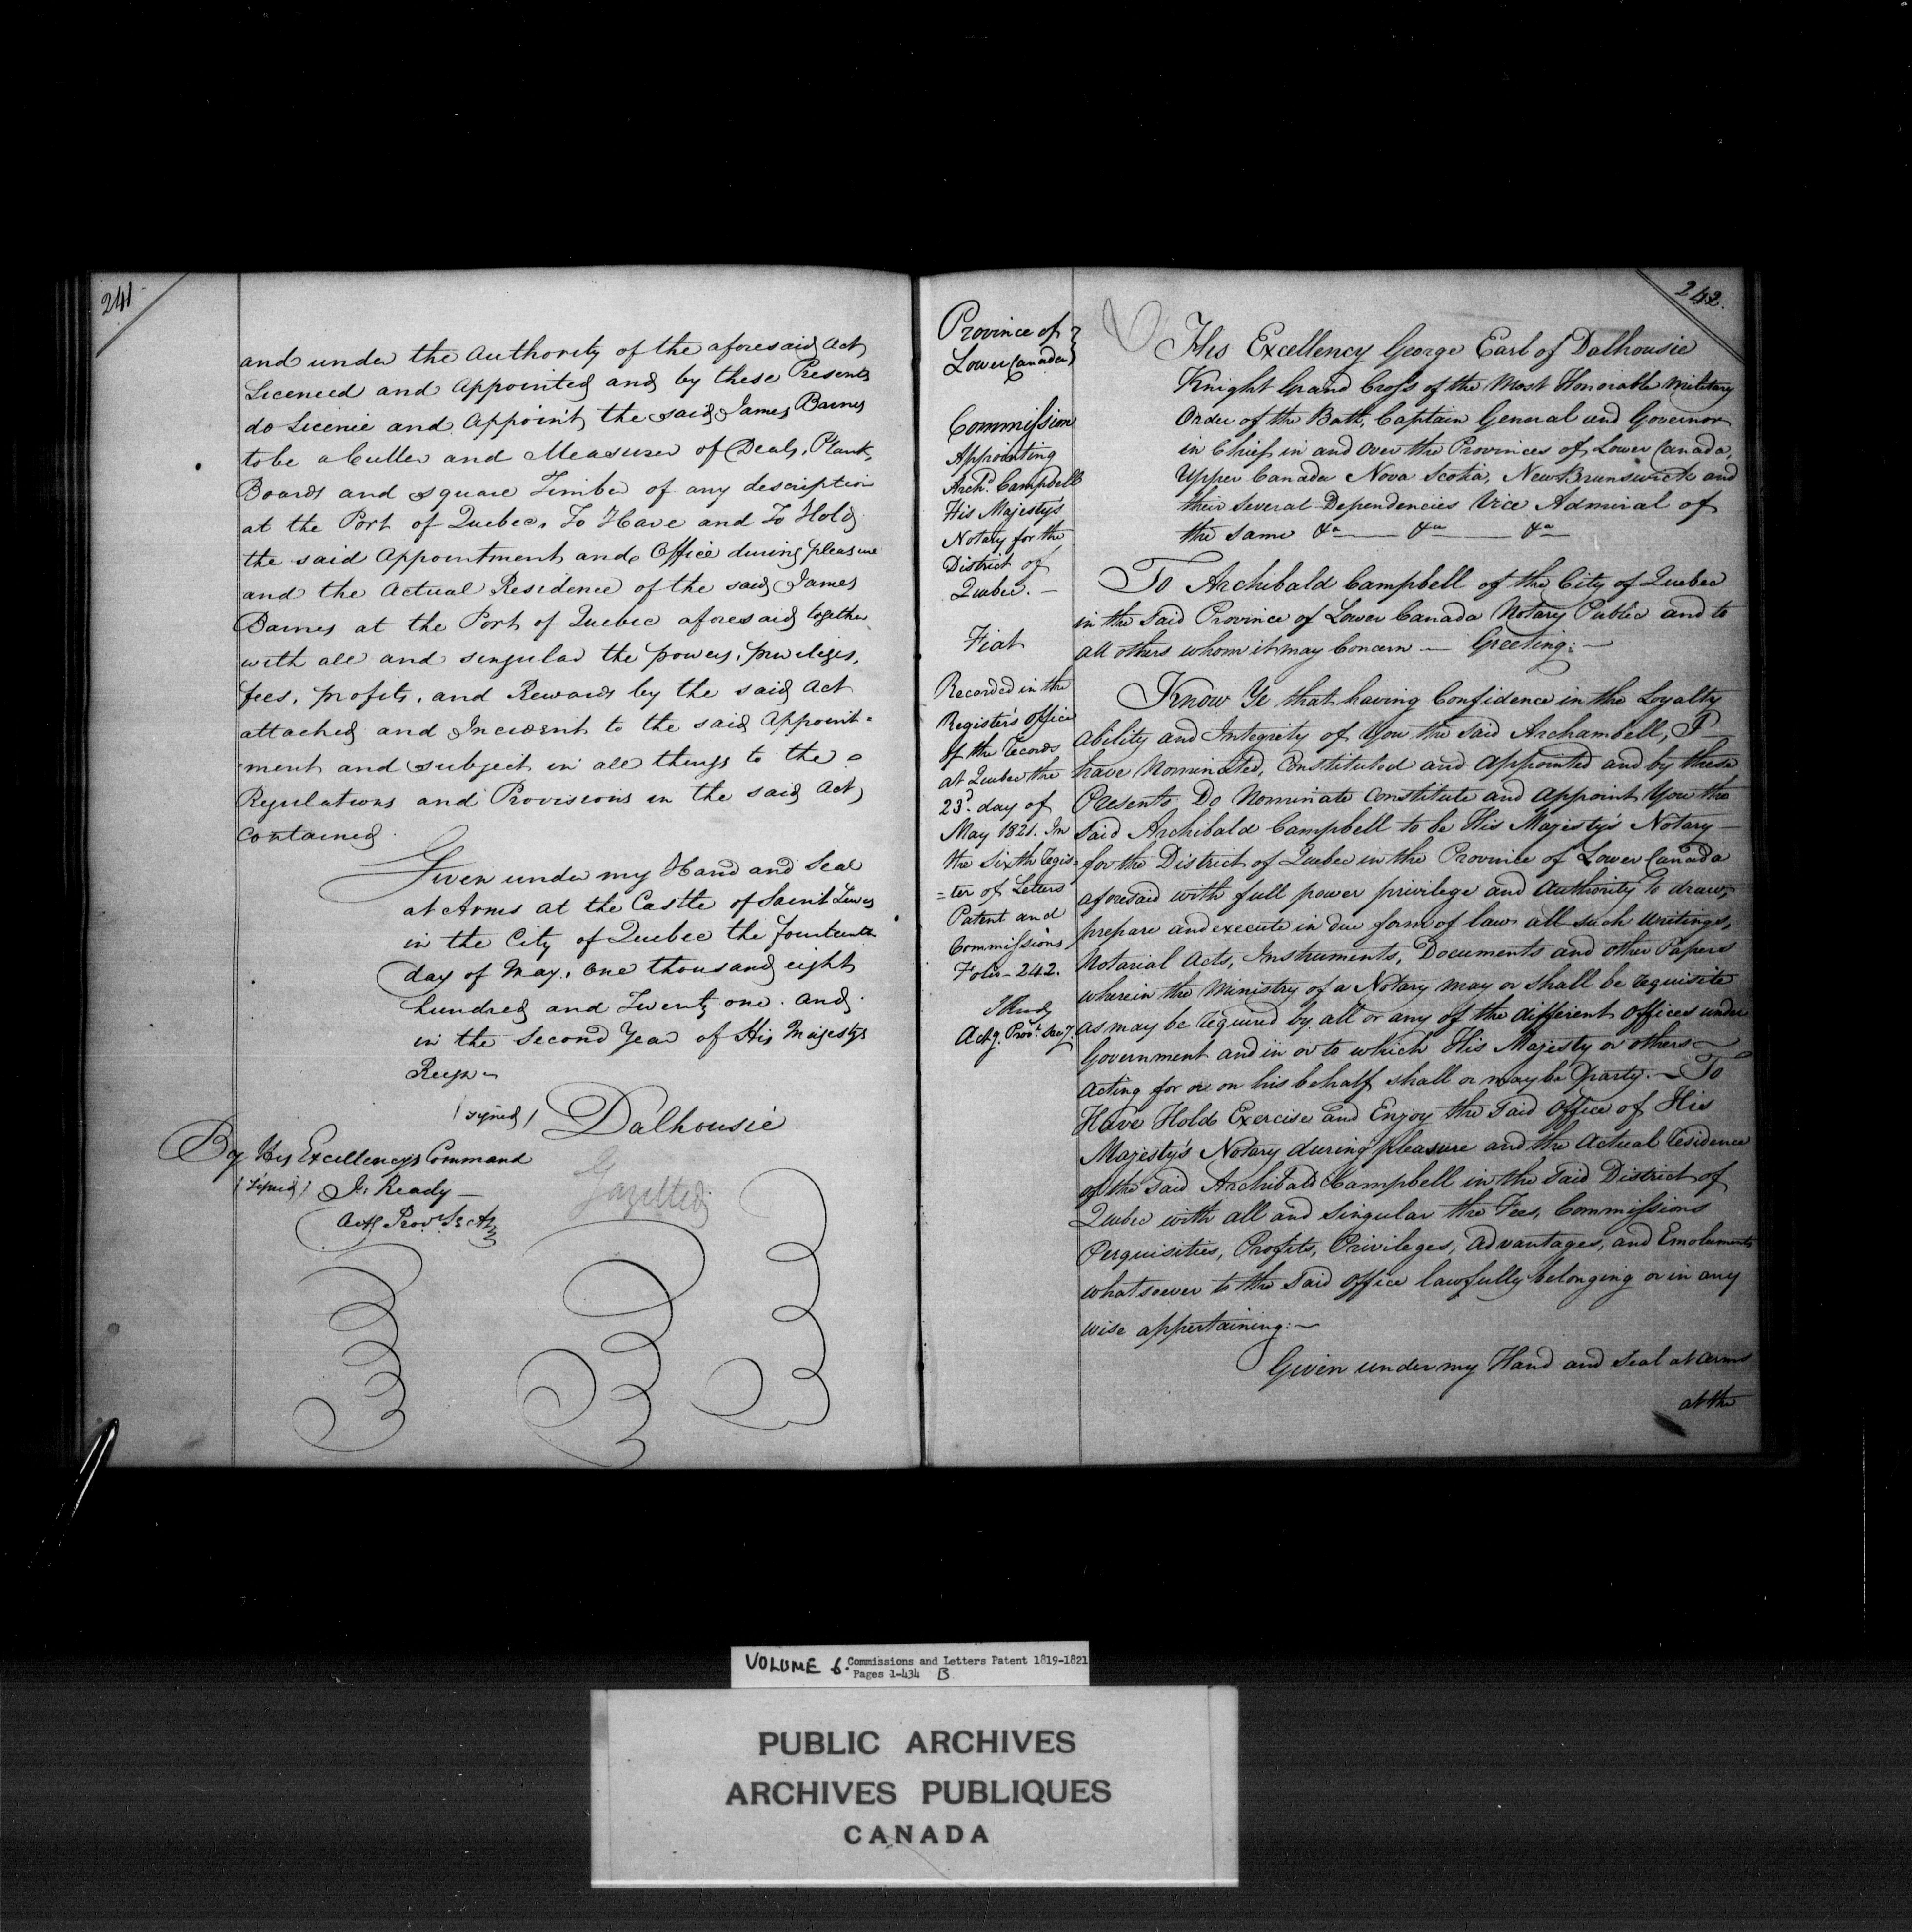 241
and under the Authority of the aforesaid Act
Licenced and Appointed and by these Presents
do Licence and Appoint the said James Barnes
to be a Culler and Measurer of Deals, Plank,
Boards and square Timber of any description
at the Port of Quebec, To Have and To Hold
the said Appointment and Office during pleasure
and the Actual Residence of the said James
Barnes at the Port of Quebec aforesaid together
with all and singular the powers, privileges,
fees, profits, and Rewards by the said Act
attached and Incident to the said Appoint=
=ment and subject in all things to the
Regulations and Provisions in the said Act
contained
Given under my Hand and Seal
at Arms at the Castle of Saint Lewis
in the City of Quebec the fourteenth
day of May, One thousand eight
hundred and Twenty one. and
in the Second Year of His Majestys
Reign
(signed) Dalhousie
By His Excellency's Command
(signed) J. Ready
Actg Provl Secty
Gazetted
242.
Province of }
Lower Canada }
Commission
Appointing
Archd. Campbell
His Majesty's
Notary for the
District of
Quebec. —
Fiat
Recorded in the
Register's Office
of the Records
at Quebec the
23d. day of
May 1821. In
the sixth Regis=
=ter of Letters
Patent and
Commissions
Folio - 242.
J Ready
Actg. Provl. Secy.
His Excellency George Earl of Dalhousie
Knight Grand Cross of the Most Honorable Military
Order of the Bath, Captain General and Governor
in Chief in and over the Provinces of Lower Canada,
Upper Canada Nova Scotia, New Brunswick and
their several Dependencies Vice Admiral of
the same &a — &a — &a —
To Archibald Campbell of the City of Quebec
in the said Province of Lower Canada Notary Public and to
all others whom it may Concern — Greeting: —
Know Ye that having Confidence in the Loyalty
ability and Integrity of You the said Archambell, I
have Nominated, Constituted and appointed and by these
Presents Do Nominate Constitute and appoint You the
said Archibald Campbell to be His Majesty's Notary
for the District of Quebec in the Province of Lower Canada
aforesaid with full power privilege and Authority to draw,
prepare and execute in due form of law all such Writings,
Notarial Acts, Instruments, Documents and other Papers
wherein the Ministry of a Notary may or shall be requisite
as may be required by all or any of the different Offices under
Government and in or to which His Majesty or others
acting for or on his behalf shall or may be party. — To
Have Hold Exercise and Enjoy the said Office of His
Majesty's Notary during pleasure and the Actual residence
of the said Archibald Campbell in the said District of
Quebec with all and singular the Fees, Commissions
Perquisities, Profits, Privileges, advantages, and Emoluments
whatsoever to the said Office lawfully belonging or in any
wise appertaining: —
Given under my Hand and Seal at arms
at the
VOLUME 6. Commissions and Letters Patent 1819-1821
Pages 1-434 B
PUBLIC ARCHIVES
ARCHIVES PUBLIQUES
CANADA